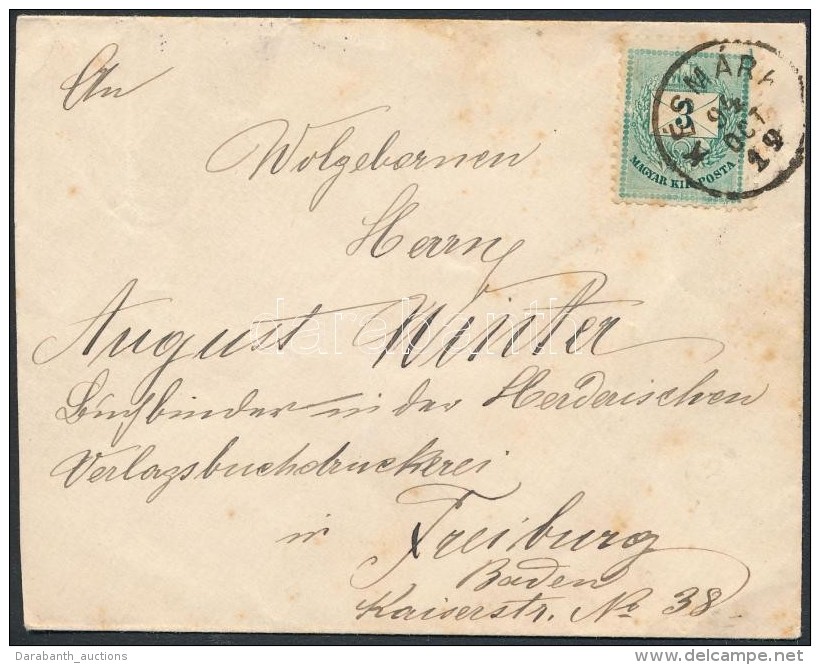 An
Wolgebornen
Herrn
August Winter
Buchbinder in der Herderischen
Verlagsbuchdruckerei
in Freiburg
Baden
Kaiserstr. No 38.
KÉSMÁRK
94
OCT
19
3
MAGYAR KIR. POSTA
darabanth
Darabanth_auctions
delcampe.net